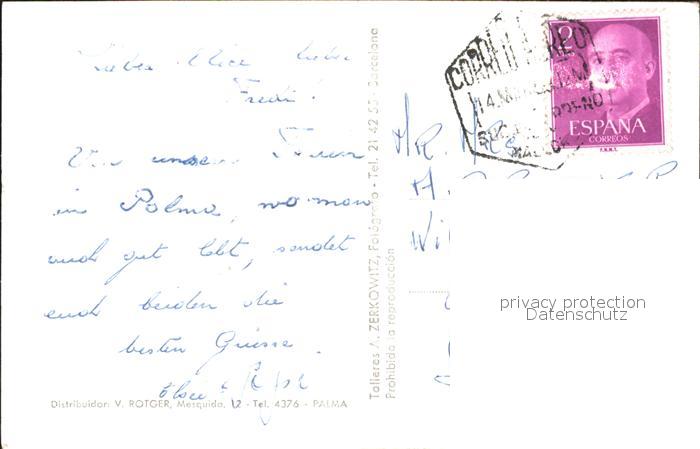 Liebe Alice, lieber
Fredi!
Von unserer
in Palma, wo man
auch gut lebt, sendet
euch beiden die
besten Grüsse.
Elsi
Distribuidor: V. ROTGER, Mesquida, 12 - Tel. 4376 - PALMA
Talleres A. ZERKOWITZ, Fotógrafo - Tel. 21 42 55 - Barcelona
Prohibida la reproducción
CORREO AEREO
2
ESPAÑA
CORREOS
F.N.M.T.
MR. MRS
privacy protection
Datenschutz